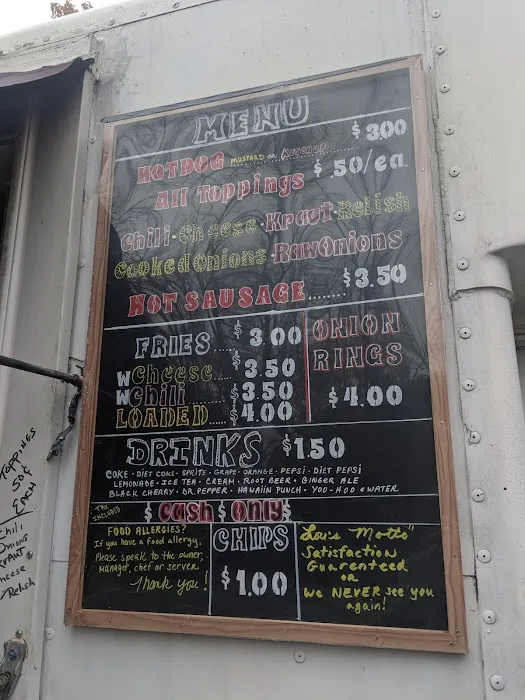 MENU
HOTDOG MUSTARD OR KETCHUP $300
All Toppings $.50/ea.
Chili · Cheese · Kraut · Relish
Cooked Onions · Raw Onions
HOT SAUSAGE........ $3.50
FRIES .... $3.00
w Cheese.... $3.50
w Chili $3.50
LOADED ..... $4.00
ONION
RINGS
$4.00
DRINKS $1.50
COKE · DIET COKE · SPRITE · GRAPE · ORANGE · PEPSI · DIET PEPSI
LEMONADE · ICE TEA · CREAM · ROOT BEER · GINGER ALE
BLACK CHERRY · DR. PEPPER · HAWAIIN PUNCH · YOO-HOO & WATER
TAX
INCLUDED
$ Cash $ Only $
FOOD ALLERGIES?
If you have a food allergy,
Please speak to the owner,
manager, chef or server.
Thank you!
CHIPS
$1.00
Lou's Motto"
Satisfaction
Guarenteed
or
We NEVER see you
again!
TOPPINGS
50¢
EACH
Chili,
Onions
Kraut
Cheese
Relish